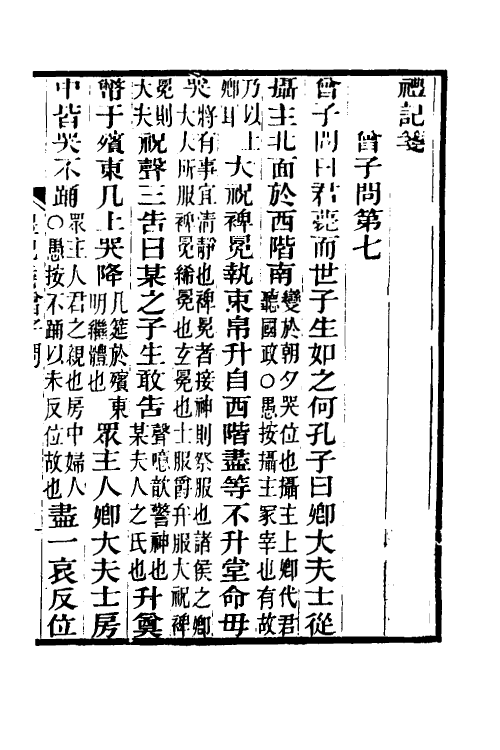 禮記箋
曾子問第七
曾子問曰君薨而世子生如之何孔子曰卿大夫士從
攝主北面於西階南變於朝夕哭位也攝主上卿代君聽國政○愚按攝主冢宰也有故
乃以上卿耳大祝裨冕執束帛升自西階盡等不升堂命毋
哭將有事宜清靜也裨冕者接神則祭服也諸侯之卿大夫所服裨冕絺冕也玄冕也士服爵弁服大祝裨
冕則大夫祝聲三告曰某之子生敢告聲噫歆警神也某夫人之氏也升奠
幣于殯東几上哭降几筵於殯東明繼體也眾主人卿大夫士房
中皆哭不踊眾主人君之親也房中婦人○愚按不踊以未反位故也盡一哀反位